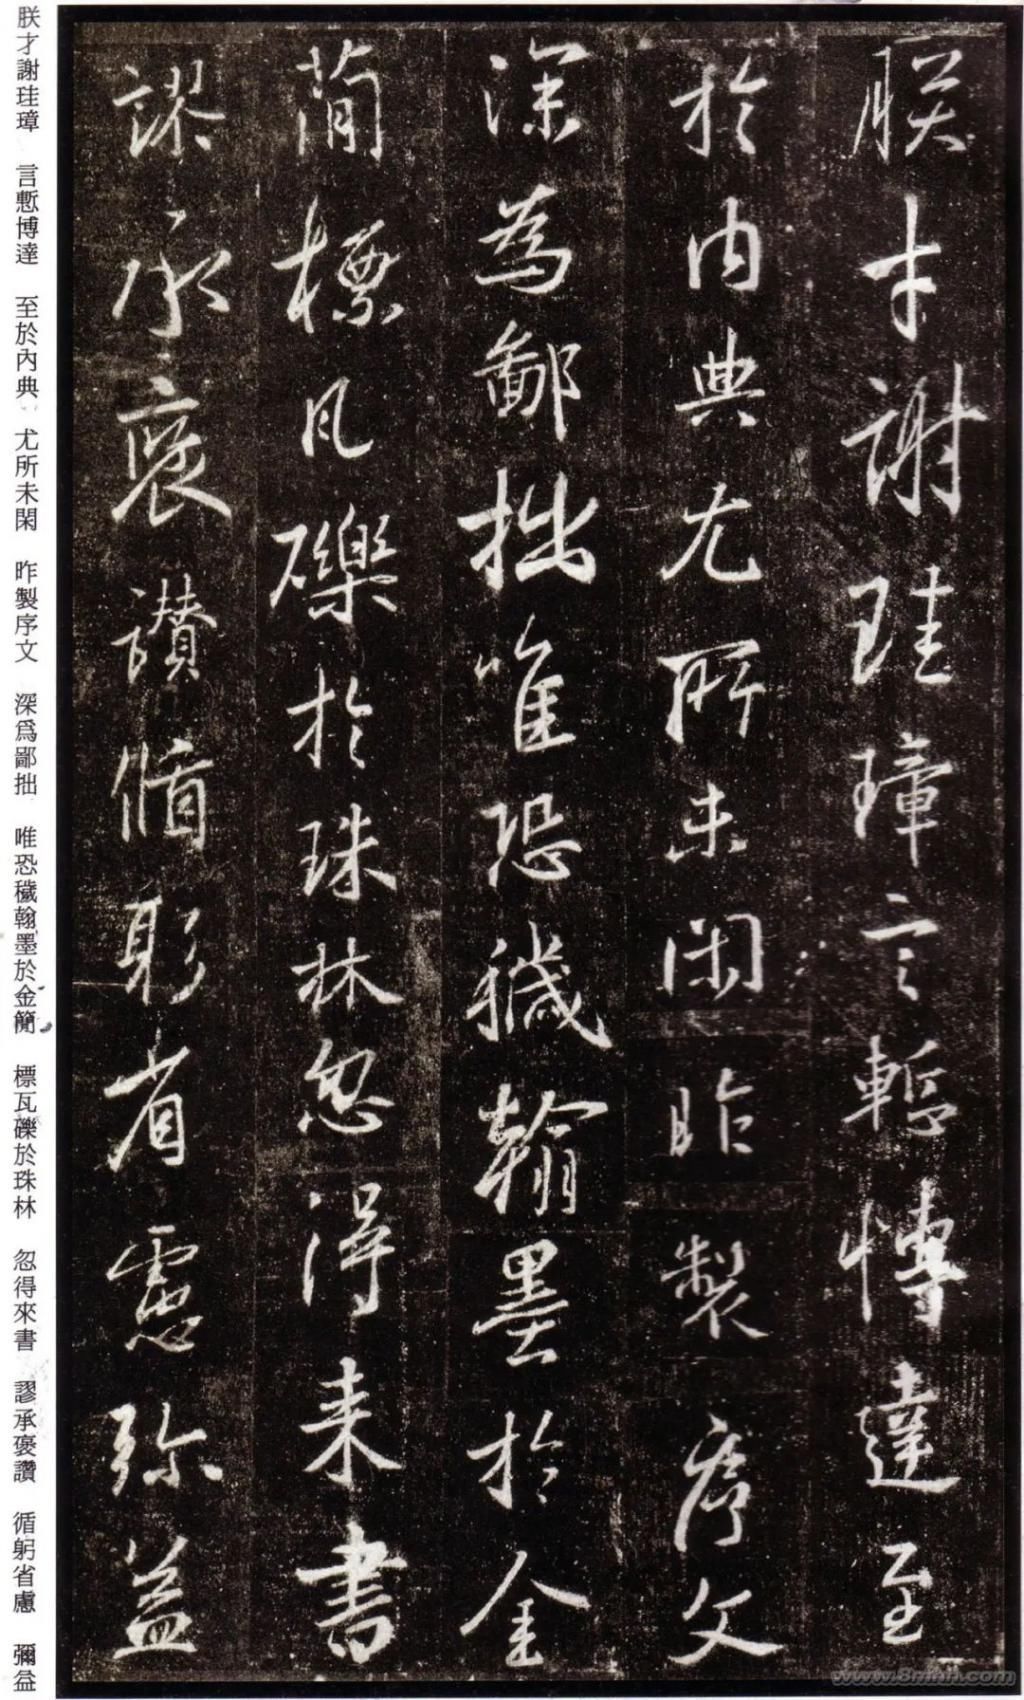 朕才謝珪璋言慙博達至
於內典尤所未閑昨製序文
深為鄙拙唯恐穢翰墨於金
簡標瓦礫於珠林忽得来書
謬承褒讚循躬省慮弥益
朕才謝珪璋 言慙博達 至於內典 尤所未閑 昨製序文 深爲鄙拙 唯恐穢翰墨於金簡 標瓦礫於珠林 忽得來書 謬承褒讚 循躬省慮 彌益